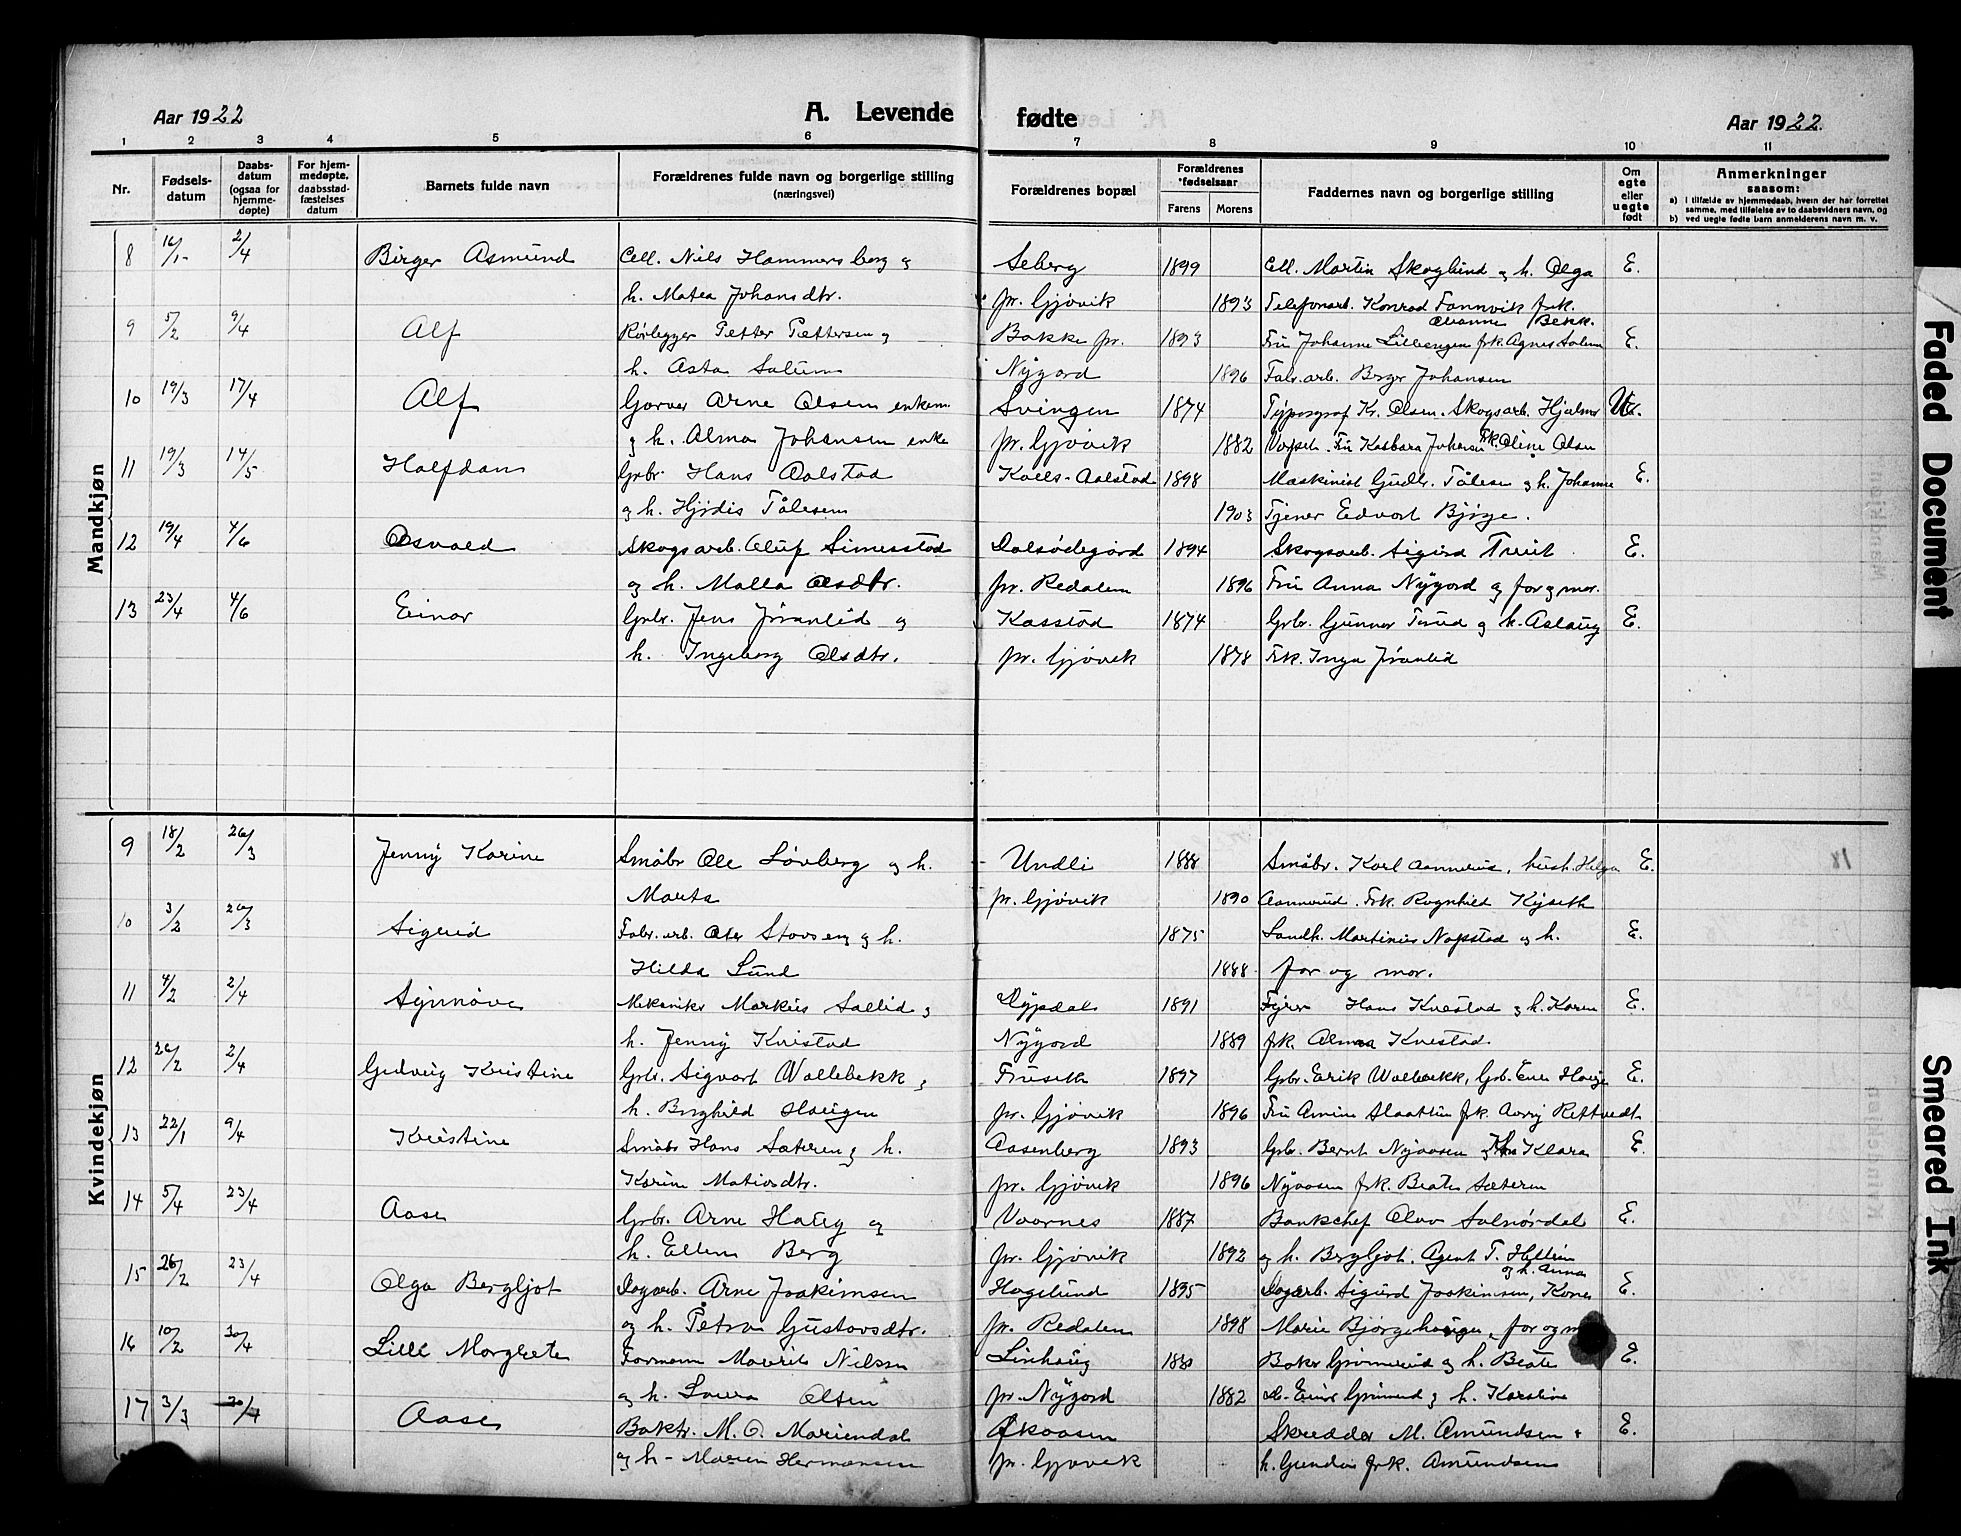 Aar 1922
A. Levende fødte
Aar 1922.
1 2 3 4 5 6 7 8 9 10 11
Nr.
Fødsels-
datum
Daabs-
datum
(ogsaa for
hjemme-
døpte)
For hjem-
medøpte,
daabsstad-
fæstelses
datum
Barnets fulde navn
Forældrenes fulde navn og borgerlige stilling
(næringsvei)
Forældrenes bopæl
Forældrenes
fødselsaar
Farens Morens
Faddernes navn og borgerlige stilling
Om
egte
eller
uegte
født
Anmerkninger
saasom:
a) I tilfælde av hjemmedaab, hvem der har forrettet
samme, med tilføielse av to daabsvidners navn, og
b) ved uegte fødte barn anmelderens navn m. v.
Mandkjøn
8 16/1 2/4 Birger Asmund Cell. Nils Hammersborg og Seberg 1899 Cell. Martin Skoglund og h. Olga E.
h. Matea Johansdtr. pr. Gjøvik 1893 Telefonarb. Konrad frk.
Bekk.
9 5/2 9/4 Alf Rørlegger Petter Pettersen og Bakke pr. 1893 Fru Johanne Lillengen frk. Agnes Solum E.
h. Asta Solum Nygord 1896 Fabr.arb. Birger Johansen
10 19/3 17/4 Alf Garver Arne Olsen enkem. Svingen 1874 Typograf Kr. Olsen. Skogsarb. Hjalmar
og h. Alma Johansen enke pr. Gjøvik 1882 Fru Johansen Frk. Oline Olsen
11 19/3 14/5 Halfdan Grbr. Hans Aalstad Kvels-Aalstad 1898 Maskinist Gudbr. Tålesen og h. Johanne E.
og h. Hjørdis Tålesen 1903 Tjener Edvart Bjørge.
12 19/4 4/6 Osvald Skogsarb. Oluf Simenstad Dalsødegård 1894 Skogsarb. Sigurd E.
og h. Malla Olsdtr. pr. Redalen 1896 Fru Anna Nygord og far og mor.
13 23/4 4/6 Einar Grbr. Jens Jranlid og Kasstad 1874 Grbr. Gunnar og h. Aslaug E.
h. Ingeborg Olsdtr. pr. Gjøvik 1878 Frk. Inga Jranlid
Kvindekjøn
9 18/2 26/3 Jenny Karine Småbr Ole Løvberg og h. Undli 1888 Småbr. Karl Aamerud, hush. Helga E.
Marta pr. Gjøvik 1890 Aamerud. Frk. Ragnhild Kyseth
10 3/2 26/3 Sigrid Fabr.arb. og h. 1875 Landh. Martinius Nøpstad og h. E.
Hilda Lund 1888 far og mor.
11 4/2 2/4 Synnøve Mekaniker Markus Sollid og Dypdal 1891 Hans Knestad og h. Karen E.
h. Jenny Knestad Nygord 1889 frk. Alma Knestad.
12 26/2 2/4 Gudveig Kristine Grbr. Sigvart Wallebekk og Fruseth 1897 Grbr. Erik Wallbekk, Grb. Haugen E.
h. Borghild Haugen pr. Gjøvik 1896 Fru frk. Rettvedt
13 22/1 9/4 Kristine Småbr Hans Sæteren og h. Aasenberg 1893 Grbr. Bernt Nyaasen og h. Klara E.
Karine Matiasdtr. pr. Gjøvik 1896 Nyaasen frk. Beate Sæteren
14 5/4 23/4 Aase Grbr. Arne Haug og Vaarnes 1887 Bankchef Olav Solnørdal E.
h. Ellen Berg pr. Gjøvik 1892 og h. Bergljot. Agent T.
og h. Anna
15 26/2 23/4 Olga Bergljot Dagarb. Arne Joakimsen Hagelund 1895 Dagarb. Sigurd Joakimsen, Kone E.
og h. Petra Gustavsdtr. pr. Redalen 1898 Marie Bjørgehaugen, far og
16 10/2 30/4 Lilli Margrete Formann Maurits Nilsen Linhaug 1880 Baker og h. Beate E.
og h. Laura Olsen pr. Nygord 1882 og h. Karstine
17 3/3 30/4 Aase Baktr. M. O. Mariendal Økaasen Skredder M. Amundsen + E.
og h - Maren Hermansen pr. Gjøvik h. Gunda frk. Amundsen
Faded Document
Smeared Ink